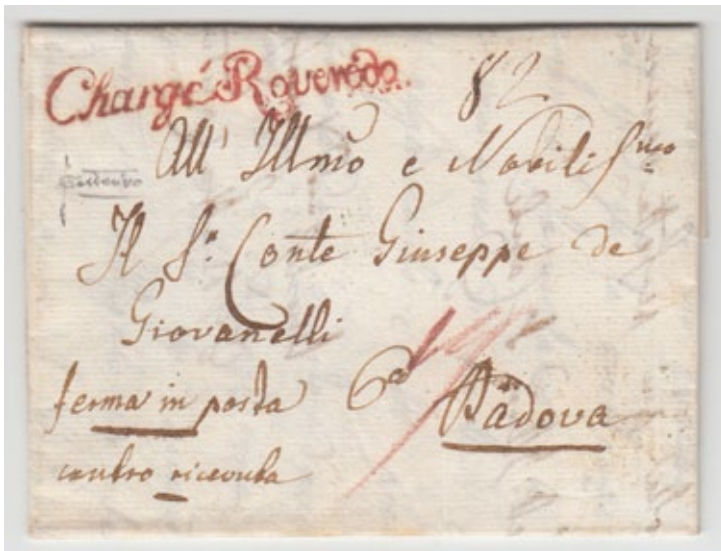 Chargé Roveredo.
82
All' Illmo e Nobiliss.mo
Il Sr. Conte Giuseppe de
Giovanelli
ferma in posta
Padova
contro ricevuta